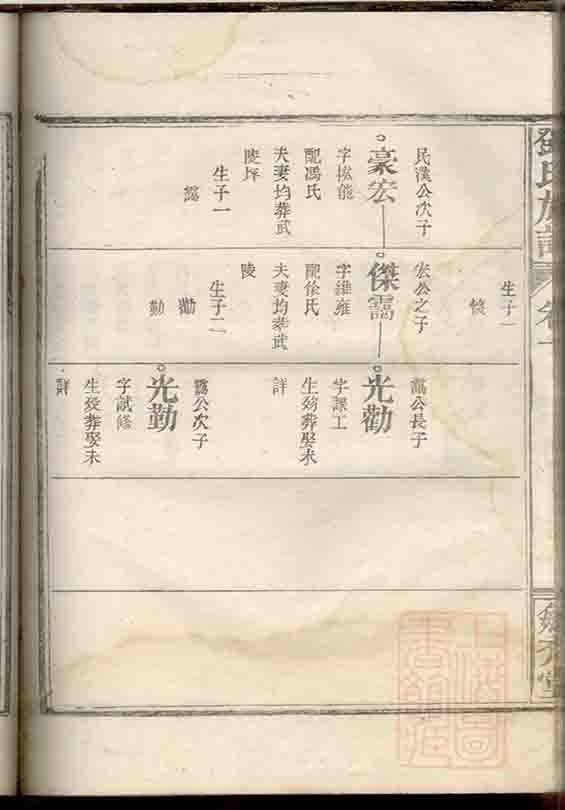 鄧氏族譜
卷一
民漢公次子
豪宏
字拔能
配馮氏
夫妻均葬武
陵坪
生子一
靄
生子一
宏公之子
傑靄
字維雍
配徐氏
夫妻均葬武
陵
生子二
勸
勤
靄公長子
光勸
字課工
生歿葬娶未
詳
靄公次子
光勤
字試修
生歿葬娶未
詳
上海圖
書館藏